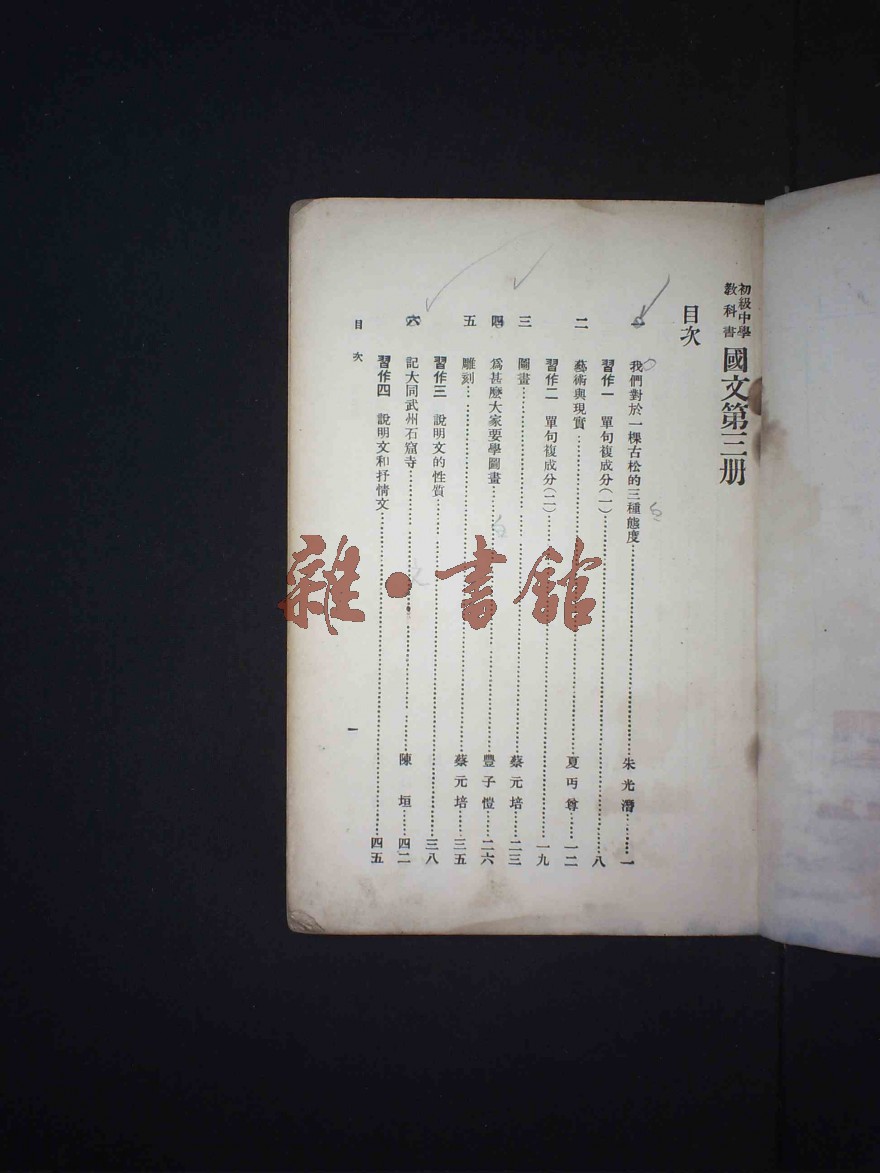 初級中學
教科書
國文第三册
目次
一 我們對於一棵古松的三種態度……朱光潛……一
習作一 單句複成分(一)……八
二 藝術與現實……夏丏尊……一二
習作二 單句複成分(二)……一九
三 圖畫……蔡元培……二三
四 爲甚麼大家要學圖畫……豐子愷……二六
五 雕刻……蔡元培……三五
習作三 說明文的性質……三八
六 記大同武州石窟寺……陳垣……四二
習作四 說明文和抒情文……四五
目次
一
雜·書館